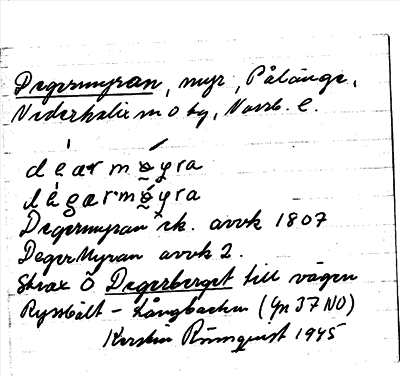 Degermyran, myr, Pålänge,
Nederkalix sn o tg, Norrb. l.
déarmøyra
dègarmøyra
Degermyran sk. avvk 1807
DegerMyran avvk 2.
Strax Ö Degerberget till vägen
Ryssbält - Långbacken (Gn 37 NO)
Kerstin Rönnquist 1945